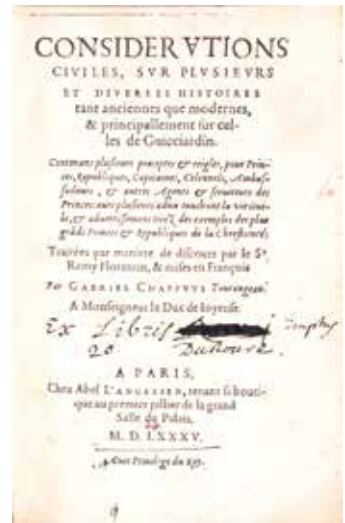 CONSIDERVTIONS
CIVILES, SVR PLVSIEVRS
ET DIVERSES HISTOIRES
tant anciennes que modernes,
& principallement sur cel-
les de Guicciardin.
Contenans plusieurs preceptes & reigles, pour Prin-
ces, Republiques, Capitaines, Colonnels, Ambas-
sadeurs, & autres Agents & seruiteurs des
Princes: auec plusieurs
& des exemples des plus
grāds Princes & Republiques de la Chrestienté:
Traitées par maniere de discours par le Sr.
Remy Florentin, & mises en François
Par GABRIEL CHAPPVYS Tourangeau.
A Monseigneur le Duc de Ioyeuse.
Ex Libris
A PARIS,
Chez Abel L'ANGELIER, tenant sa bouti-
que au premier pillier de la grand
Salle du Palais.
M. D. LXXXV.
Auec Priuilege du Roy.